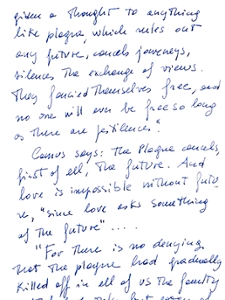 given a thought to anything
like plague which rules out
any future, cancels journeys,
silences the exchange of views.
They fancied themselves free, and
no one will ever be free so long
as there are pestilences".
Camus says: The Plague cancels,
first of all, the future. And
love is impossible without futu-
re, "since love asks something
of the future" ....
"For there is no denying
that the plague had gradually
killed off in all of us the faculty